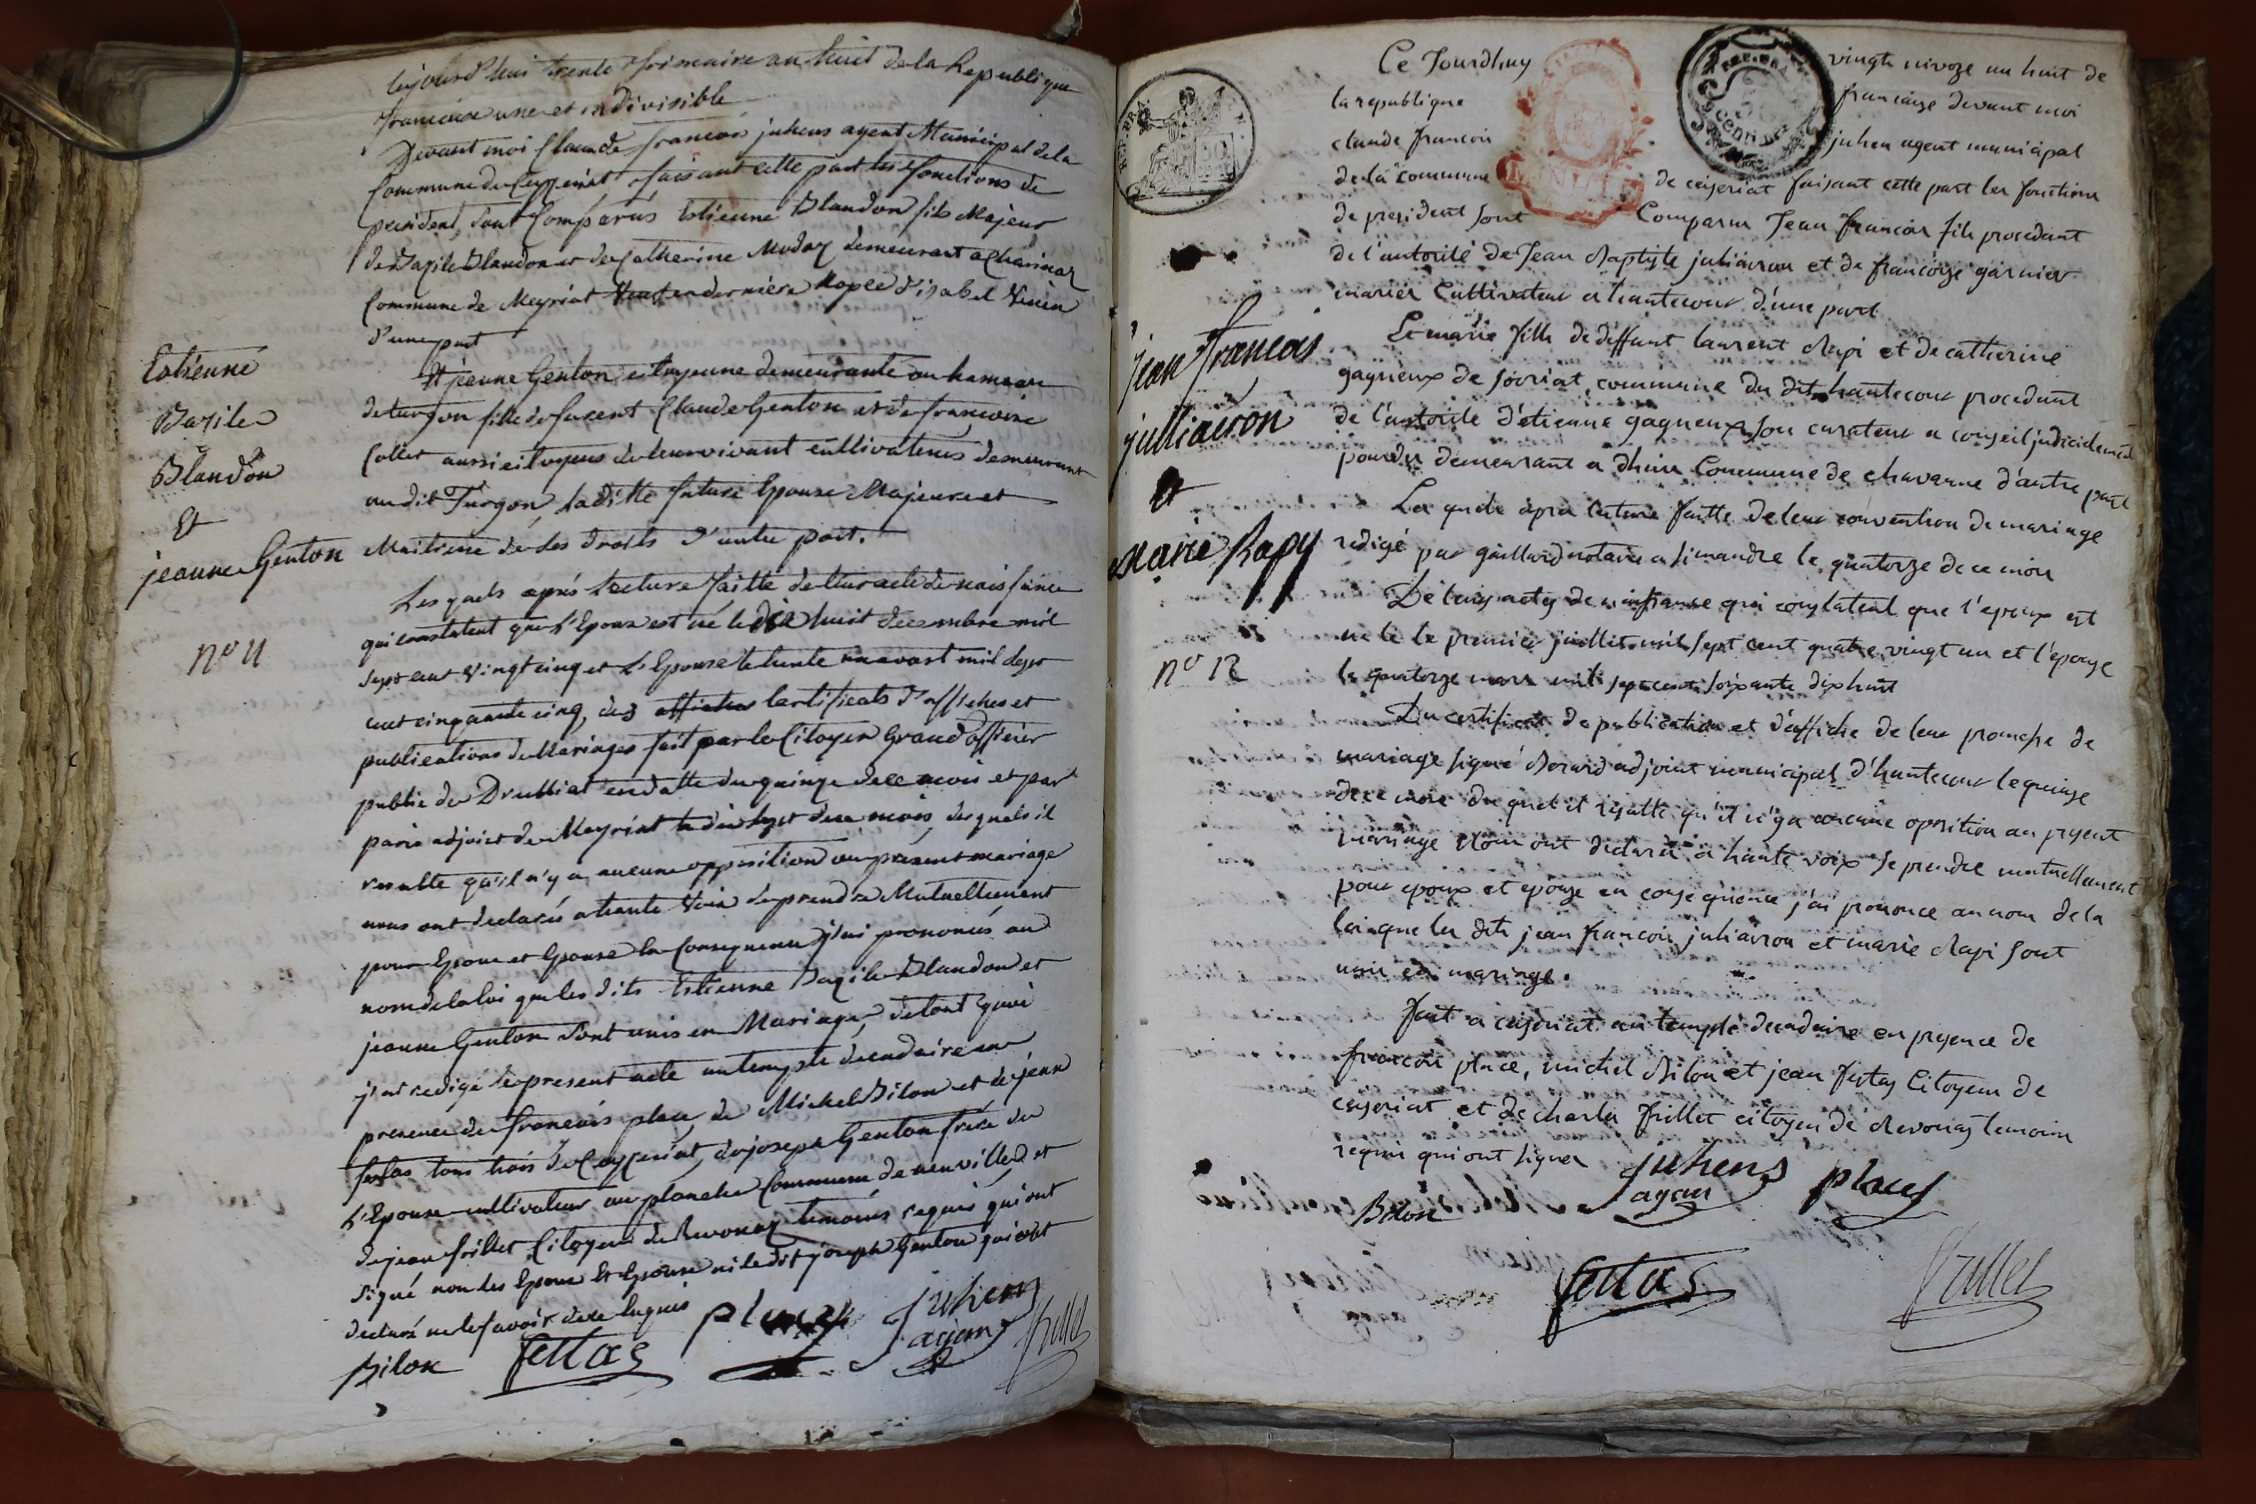 aujourd'hui trente frimaire an huit de la Republique
francaise une et indivisible
Devant moi Claude francois juhens agent Municipal de la
Commune de Ceyzeriat faisant cette part les fonctions de
president, sont Comparus Estienne Blandon fils Majeur
de Bazile Blandon et de Catherine Moday demeurant a Charinaz
Commune de Meyriat en derniere Nopce d'izabel
d'une part
Et jeanne Genton citoyenne demeurante au hameau
de turgon fille de fucent Claude Genton et de francoise
Collet aussi citoyens de leur vivant cultivateurs demeurant
au dit Turgon, laditte future Epouse Majeure et
Maitresse de ses droits d'autre part.
Les quels après lecture faitte de leur acte de naissance
qui constatent que l'Epoux est né le dix huit decembre mil
sept cent vingt cinq et l'Epouse le trente un aoust mil sept
cent cinquante cinq, des certificats d'affiches et
publications de Mariages fait par le Citoyen Grand officier
public de Druilliat en datte du quinze de ce mois et par
paris adjoint de Meyriat le dix sept de ce mois, des quels il
resulte qu'il n'y a aucune opposition au present mariage
nous ont declarés a haute voix se prendre Mutuellement
pour Epoux et Epouse en Consequence j'ai prononcés au
nom de la loi que les dits Estienne Bazile Blandon et
jeanne Genton sont unis en Mariage, de tout quoi
j'ai redigé le present acte au temple decadaire en
presence de francois place, de Michel Bilon et de jean
fetas tous trois de Ceyzeriat, de joseph Genton frere de
l'Epouse cultivateur au planche Commune de neuville et
de jean frillet Citoyen de Revonaz temoins requis qui ont
signé non les Epoux Et Epouse ni le dit joseph Genton qui ont
declaré ne le savoir de ce enquis
Bilon fettas place juhens
agent frillet
Estienne
Bazile
Blandon
Et
jeanne Genton
n° 11
Ce Jourdhuy vingt nivoze an huit de
la republique francaise devant moi
claude francois juhen agent municipal
de la commune de ceyseriat faisant cette part les fonctions
de president sont Comparu Jean francois fils procedant
de l'autorité de Jean Baptiste juliairon et de francoise garnier
mariés Cultivateur a hautecour d'une part
Et marie fille de deffunt laurent Rapi et de catherine
gagneux de soiriat, commune du dit hautecour procedant
de l'autorité d'etienne gagneux son curateur a conseil judiciel
pourvu demeurant a dhuis Commune de chavanne d'autre part
Les quels apres lecture faitte de leur convention de mariage
redigé par gaillard notaire a simandre le quatorze de ce mois
De leurs actes de naissance qui constatent que l'epoux est
né le premier juillet mil sept cent quatre vingt un et l'epouse
le quatorze mars mil sept cent soixante dix huit
Du certificat de publication et d'affiche de leur promesse de
mariage signé Borard adjoint municipal d'hautecour le quinze
de ce mois du quel il resulte qu'il n'y a aucune oposition au present
mariage Nous ont declaré a haute voix se prendre mutuellement
pour epoux et epouse en consequence j'ai prononcé au nom de la
loi que les dits jean francois juliairon et marie Rapi sont
unis en mariage.
fait a ceyseriat au temple decadaire en presence de
francois place, michel Bilon et jean fetas Citoyens de
ceyseriat et de charles frillet citoyen de Revonas temoins
requis qui ont signer
juhens
agent
places
Bilon
fettas
frillet
jean francois
julliairon
et
Marie Rapy
n° 12